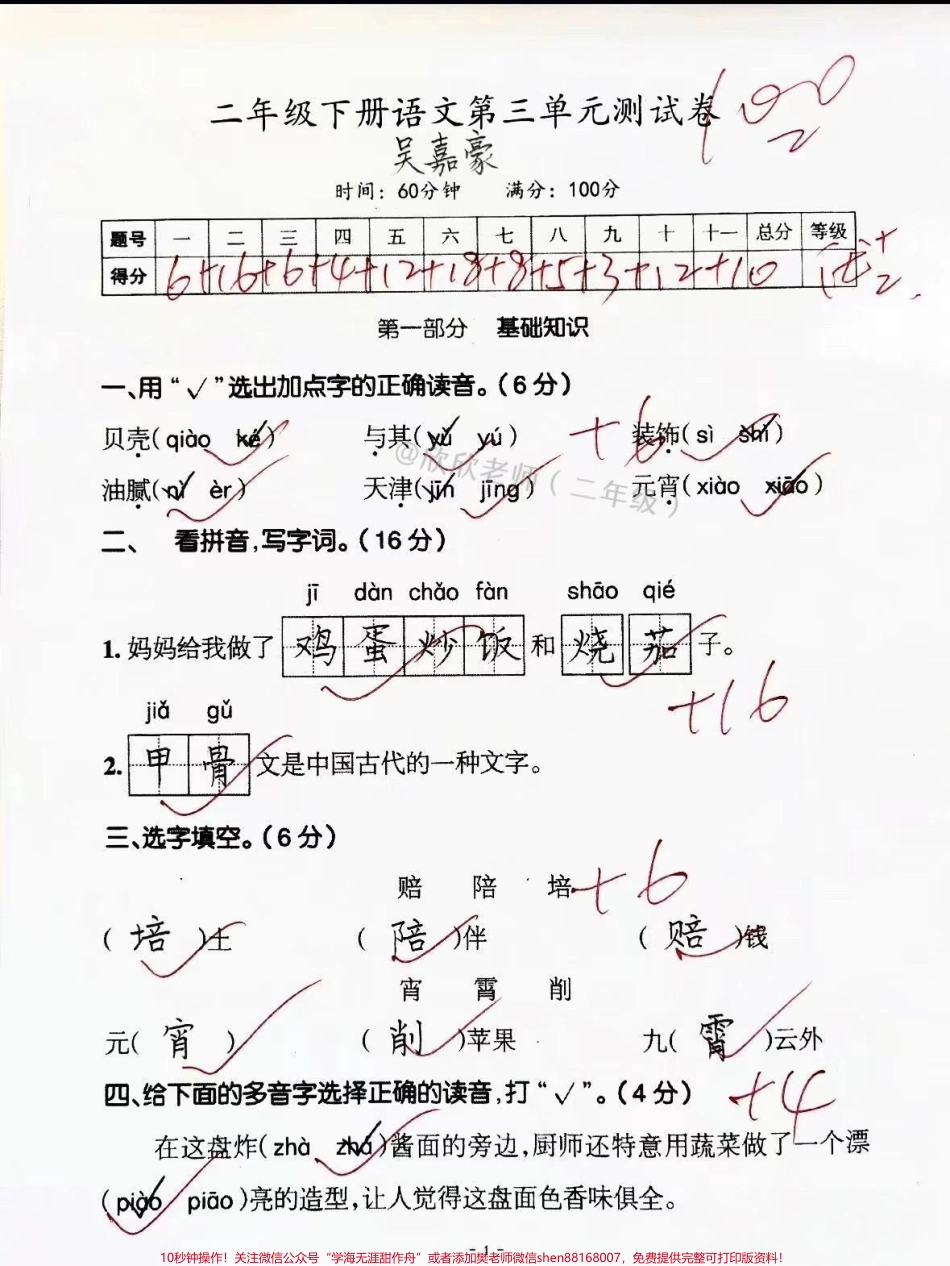 二年级下册语文第三单元测试卷 100
2
吴嘉豪
时间：60分钟 满分：100分
题号 一 二 三 四 五 六 七 八 九 十 十一 总分 等级
得分 6+16+6+4+12+18+8+5+3+12+10 优+2
第一部分 基础知识
一、用“√”选出加点字的正确读音。（6分）
贝壳(qiào ké) 与其(yǔ yú) +6 装饰(sì shì)
@欣欣老师（二年级）
油腻(nì èr) 天津(jīn jīng) 元宵(xiào xiāo)
二、 看拼音，写字词。（16分）
jī dàn chǎo fàn shāo qié
1. 妈妈给我做了 鸡蛋炒饭 和 烧茄 子。
+16
jiǎ gǔ
2. 甲骨 文是中国古代的一种文字。
三、选字填空。（6分）
赔 陪 培 +6
（培）土 （陪）伴 （赔）钱
宵 霄 削
元（宵） （削）苹果 九（霄）云外
四、给下面的多音字选择正确的读音，打“√”。（4分） +4
在这盘炸(zhà zhá)酱面的旁边，厨师还特意用蔬菜做了一个漂
(piào piāo)亮的造型，让人觉得这盘面色香味俱全。
- 1 -
10秒钟操作！关注微信公众号“学海无涯甜作舟”或者添加樊老师微信shen88168007，免费提供完整可打印版资料！